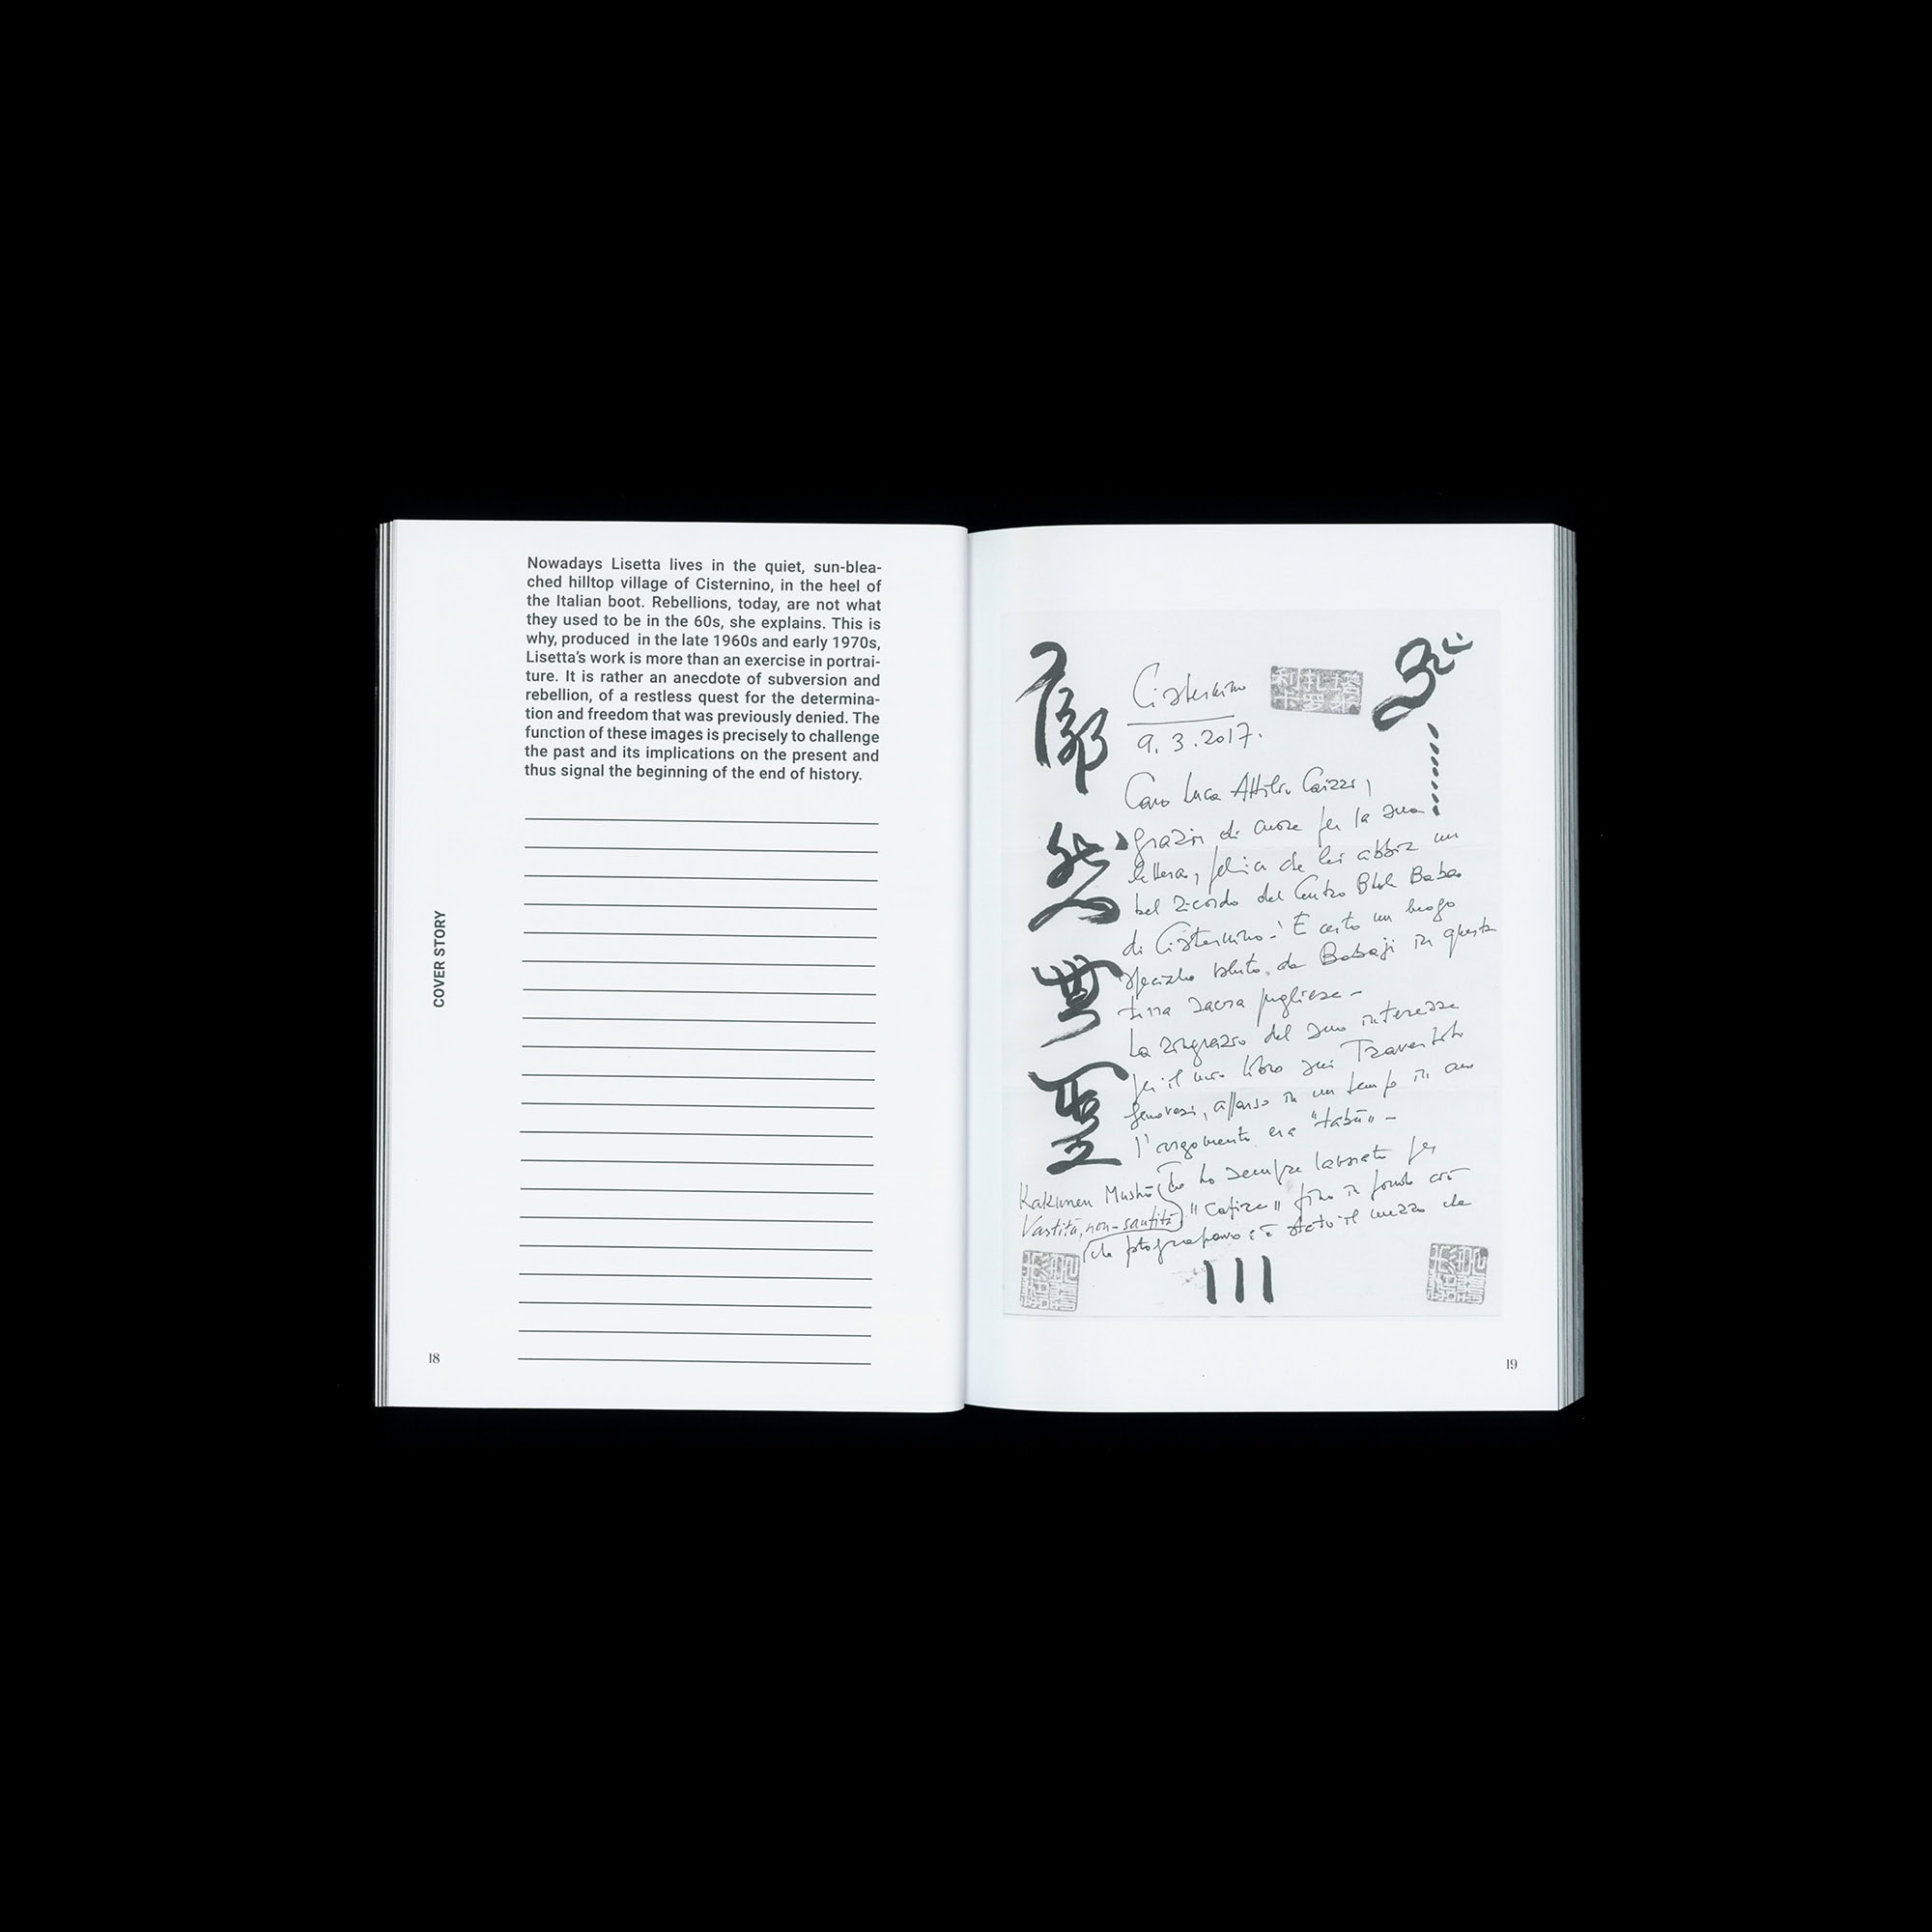 Nowadays Lisetta lives in the quiet, sun-blea-
ched hilltop village of Cisternino, in the heel of
the Italian boot. Rebellions, today, are not what
they used to be in the 60s, she explains. This is
why, produced in the late 1960s and early 1970s,
Lisetta's work is more than an exercise in portrai-
ture. It is rather an anecdote of subversion and
rebellion, of a restless quest for the determina-
tion and freedom that was previously denied. The
function of these images is precisely to challenge
the past and its implications on the present and
thus signal the beginning of the end of history.
COVER STORY
18
廓然無聖
Cisternino
利扎塔
卡罗米
9. 3. 2017.
Caro Luca Attilio Caizzi,
grazie di cuore per la sua
lettera, felice che lei abbia un
bel ricordo del Centro Bhole Baba
di Cisternino - È certo un luogo
speciale voluto da Babaji in questa
terra sacra pugliese -
La ringrazio del suo interesse
per il mio libro sui Travestiti
genovesi, apparso in un tempo in cui
l'argomento era "tabù" -
Io ho sempre lavorato per
"capire" fino in fondo ciò
che fotografavo e è stato il mezzo che
Kakunen Mushō
Vastità, non-santità
19